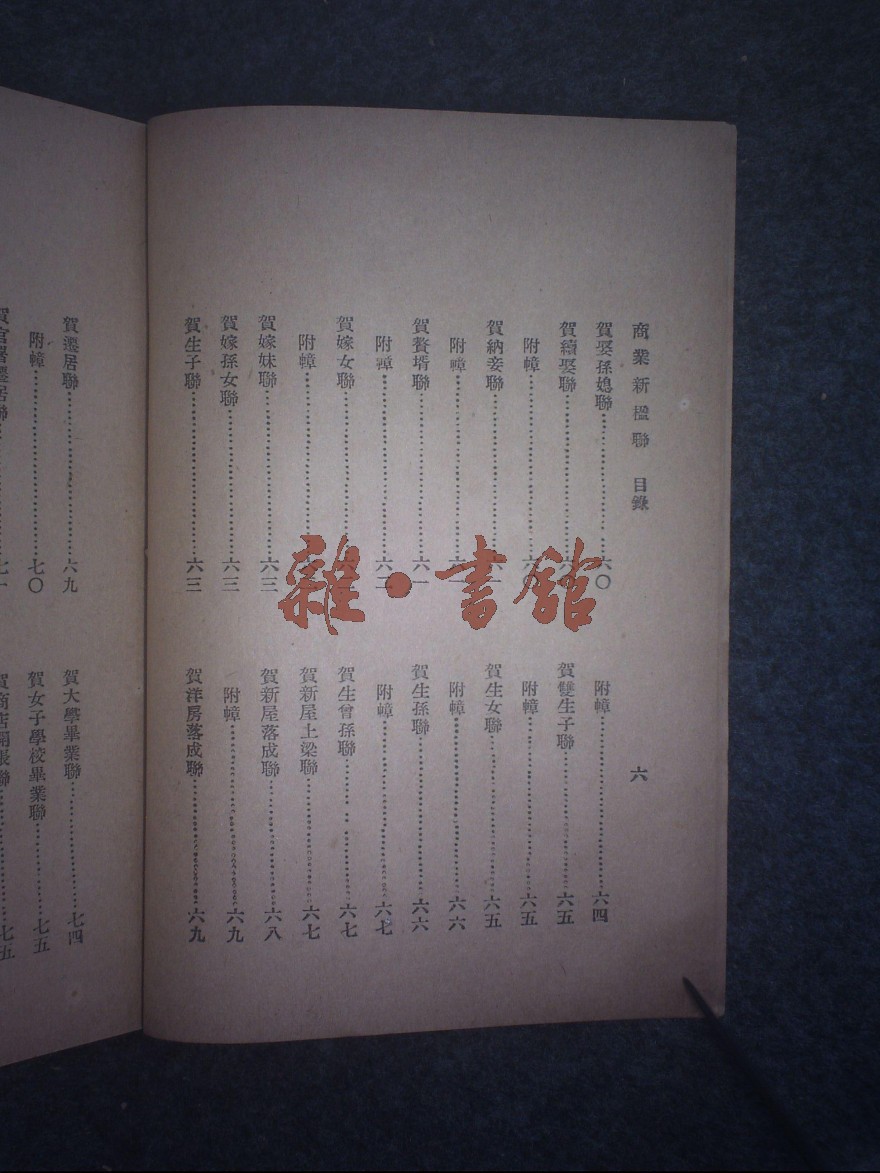 商業新楹聯 目錄 六
賀娶孫媳聯……六〇
賀續娶聯……六
附幛……六
賀納妾聯……
附幛……
賀贅壻聯……六一
附幛……六二
賀嫁女聯……
附幛……
賀嫁妹聯……六三
賀嫁孫女聯……六三
賀生子聯……六三
附幛……六四
賀雙生子聯……六五
附幛……六五
賀生女聯……六五
附幛……六六
賀生孫聯……六六
附幛……六七
賀生曾孫聯……六七
賀新屋土梁聯……六七
賀新屋落成聯……六八
附幛……六九
賀洋房落成聯……六九
賀遷居聯……六九
附幛……七〇
賀官署遷居聯……七一
賀大學畢業聯……七四
賀女子學校畢業聯……七五
賀商店開張聯……七五
雜·書館